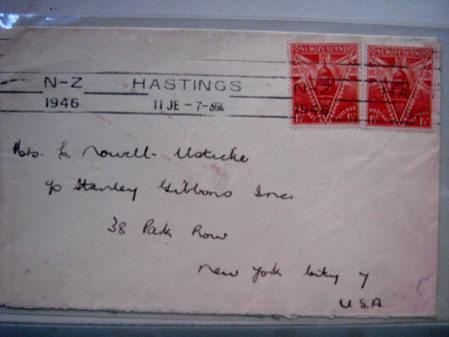 NEW ZEALAND NEW ZEALAND
N-Z HASTINGS N-Z N-Z
1946 11 JE -7-
Nowell-Usticke
c/o Stanley Gibbons Inc
38 Park Row
New York City 7
U.S.A